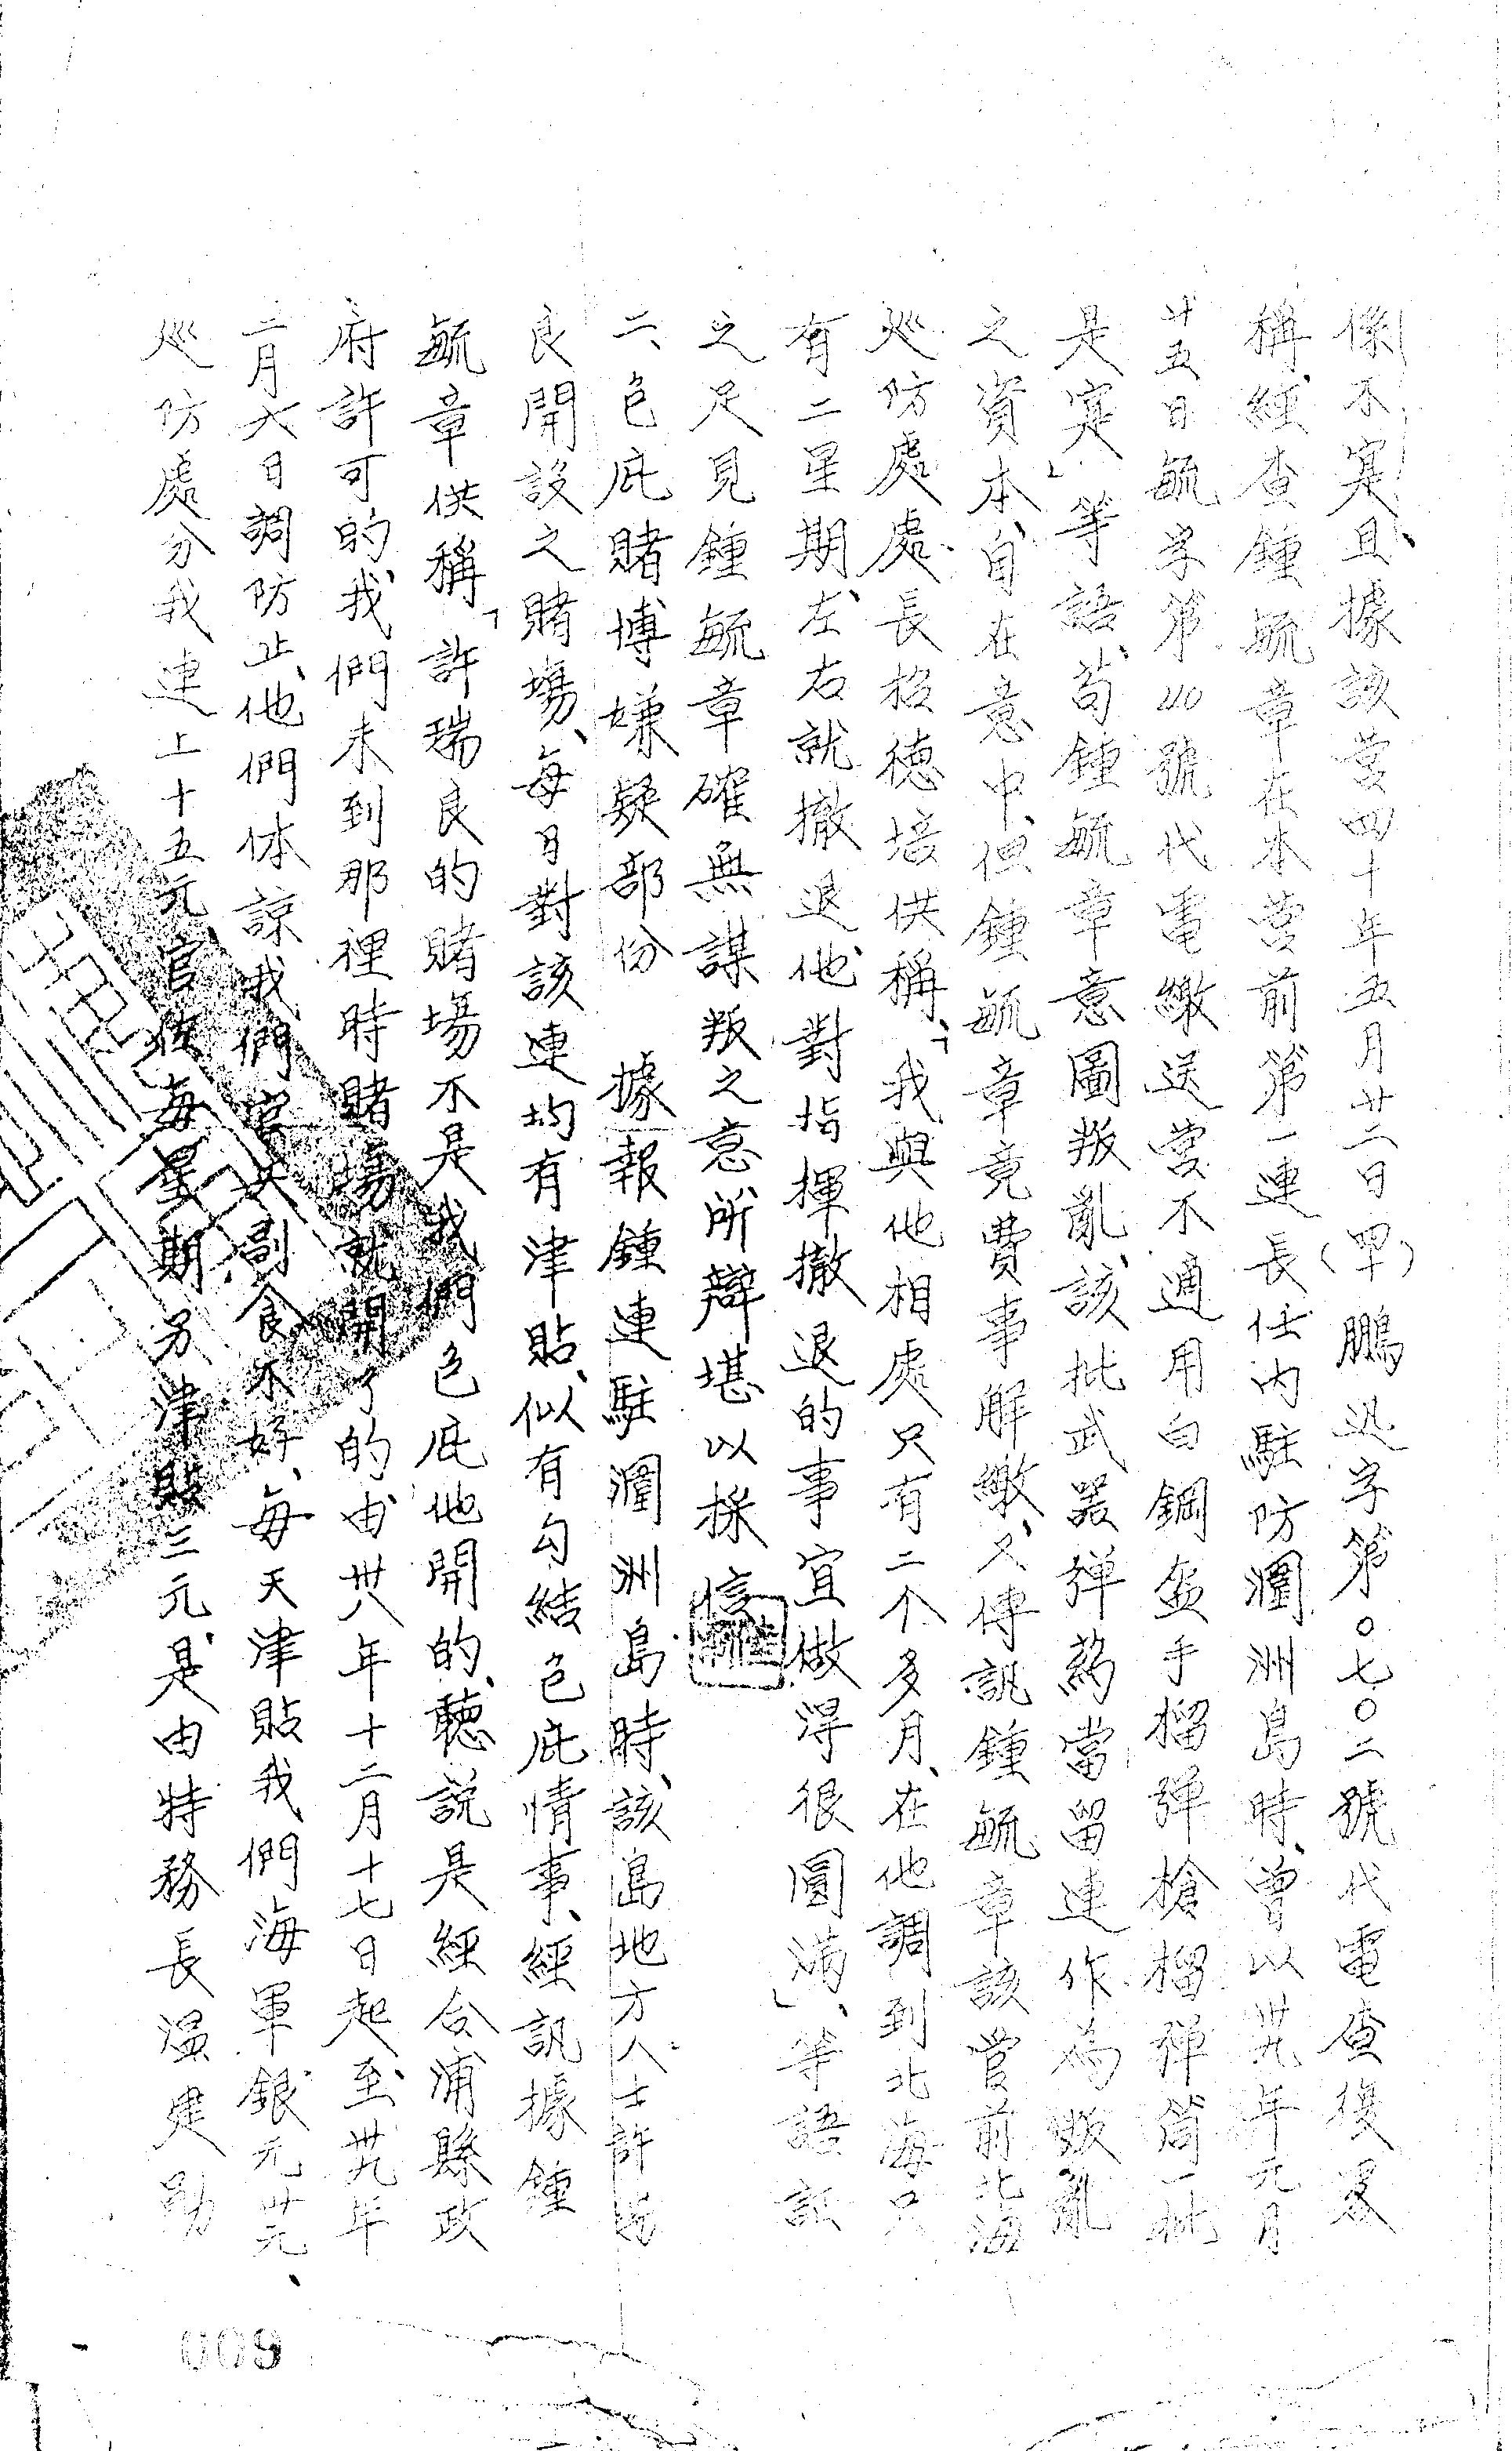 係不寔且據該营四十年五月廿二日(罕)鵬迅字第〇七〇二號代電查復畧
稱經查鍾毓章在本营前第一連長任内駐防潿洲島時、曾以卅九年元月
廿五日毓字第110號代電繳送营不適用白鋼盔手榴弹槍榴弹筒一批
是寔」等語、苟鍾毓章意圖叛亂、該批武器弹葯當留連作為叛亂
之資本、自在意中、但鍾毓章竟費事解繳、又傳訊鍾毓章該营前北海
巡防處處長招德培供稱、「我與他相處只有二个多月、在他調到北海只
有二星期左右就撤退他、對指揮撤退的事宜做得很圓満」、等語証
之足見鍾毓章確無謀叛之意所辯堪以採信
二、包庇賭博嫌疑部份 據報鍾連駐潿洲島時、該島地方人士許瑞
良開設之賭場、每日對該連均有津貼、似有勾結包庇情事、經訊據鍾
毓章供稱「許瑞良的賭場不是我們包庇他開的、聽説是經合浦縣政
府許可的、我們未到那裡時賭場就開了的、由卅八年十二月十七日起至卅九年
二月六日調防止、他們体諒我們官兵副食不好、每天津貼我們海軍銀元卅元、
巡防處分我連上十五元、官佐每星期另津貼三元、是由特務長温建勛
009